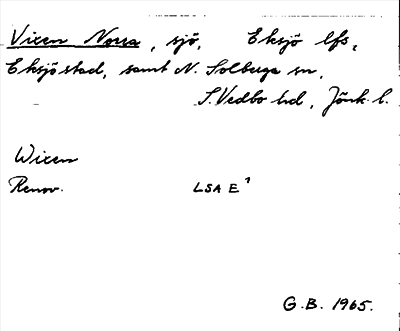 Vixen Norra, sjö, Eksjö lfs,
Eksjö stad, samt N. Solberga sn,
S. Vedbo hd, Jönk. l.
Wixen
Renov. LSA E¹
G.B. 1965.